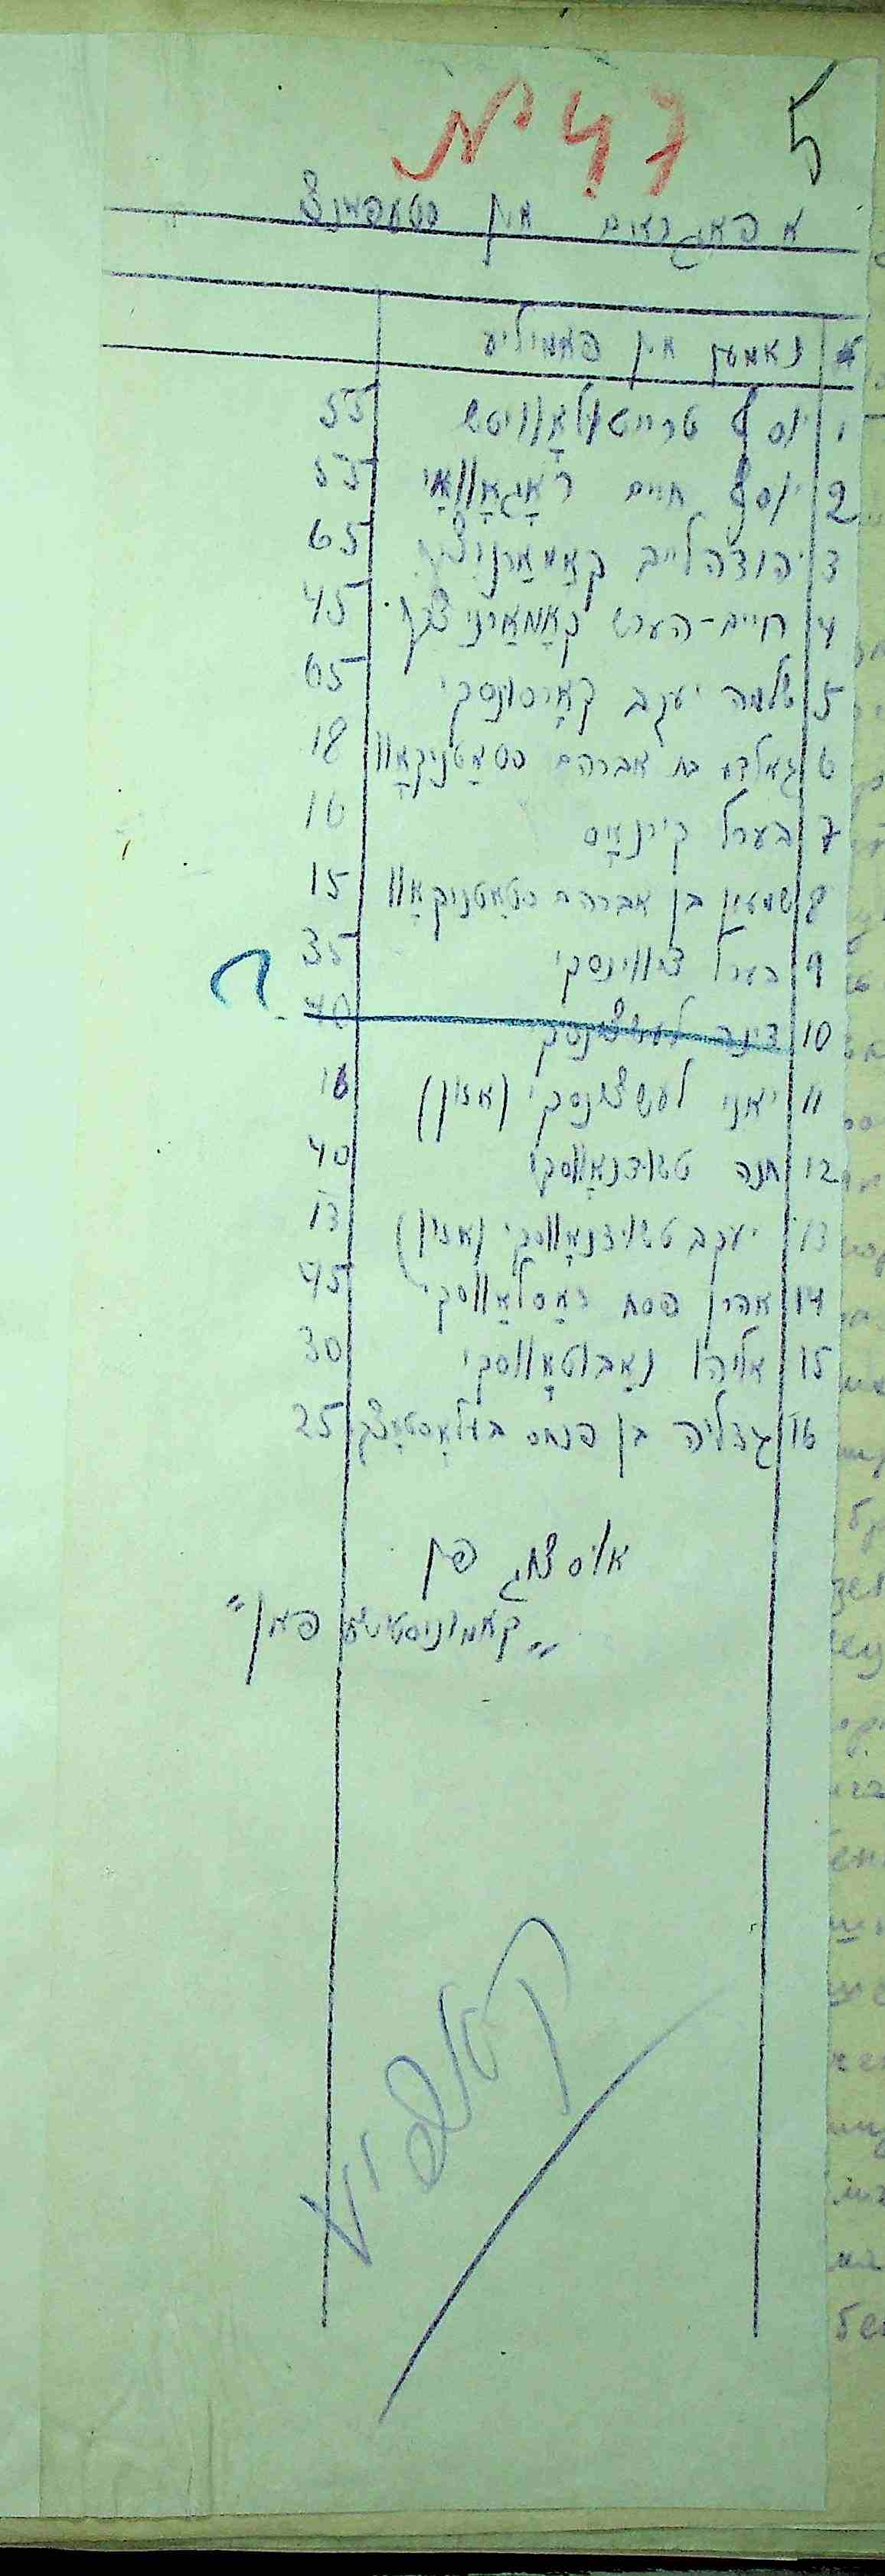 № 47 5
א פאגראם אין סטעפאנצ
№ נאמען אין פאמיליע
1 יוסף טרייטלאָוויטש 55
2 יוסף חיים ראָגאָוואַי 55
3 יהודה לייב קאָמאַרניצקי 65
4 חיים-הערש קאָמאַרניצקי 45
5 שלמה יעקב קאָרסונסקי 65
6 גאלדע בת אברהם סטאָטניקאָוו 18
7 בערל קירנאָס 16
8 שמעון בן אברהם סטאָטניקאָוו 15
9 בערל צווינסקי 35
10 דינה לעשצינסקי 40
11 יאני לעשצינסקי (אזון) 16
12 חנה טשודנאָווסקי 40
13 יעקב טשודנאָווסקי (אזון) 13
14 אהרן פסח זאַסלאַווסקי 45
15 אליהו נאַבוטאָווסקי 30
16 גדליה בן פנחס בעלאָסטאָצקי 25
אויסצוג פון
„קאמוניסטישע פאן"
קאפיע